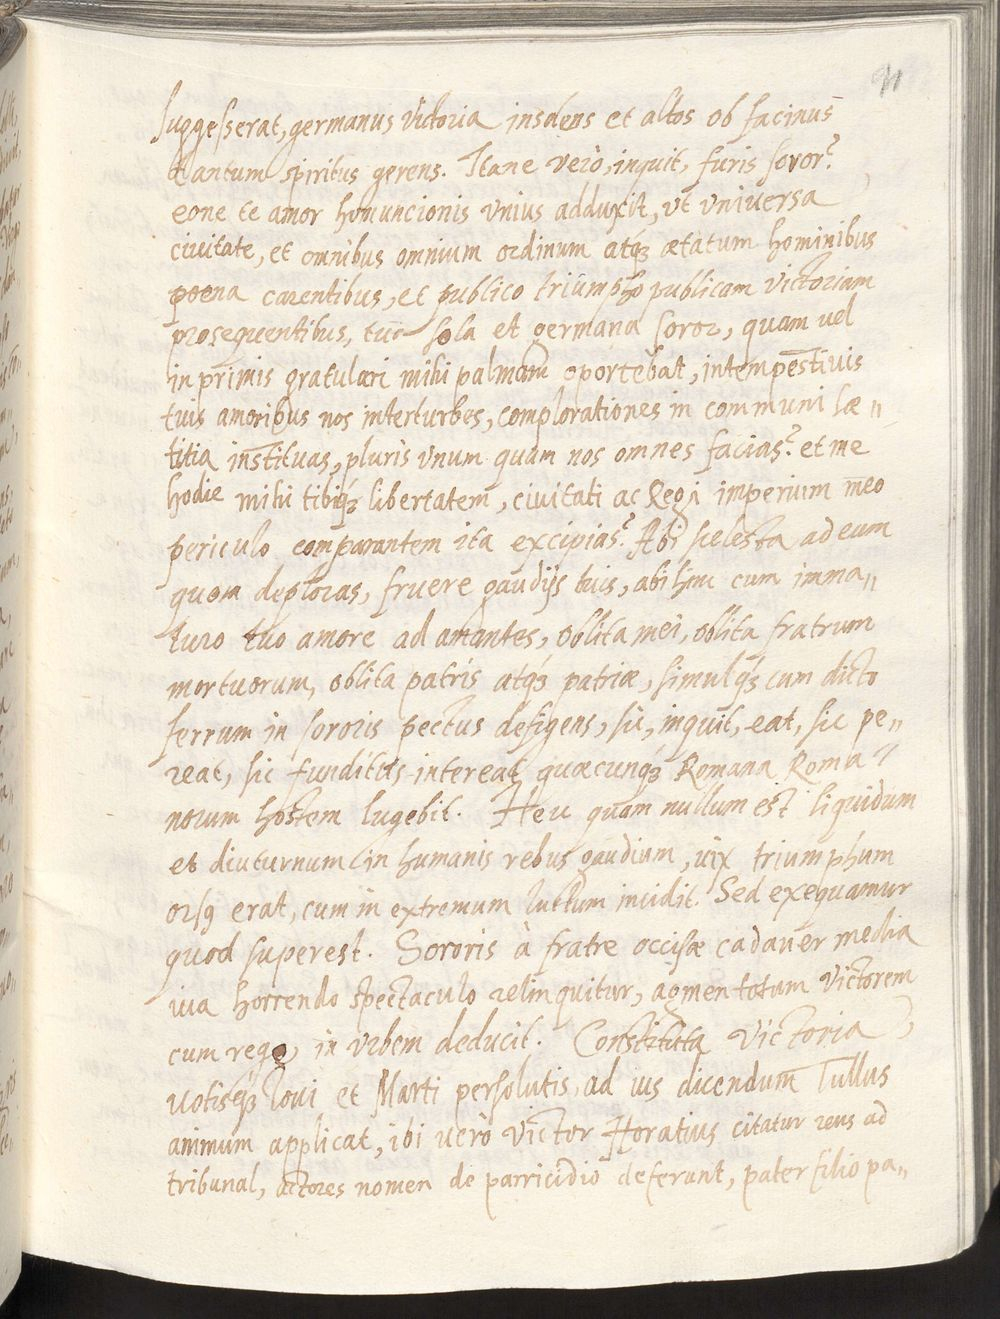 91
suggesserat, germanus victoria insolens et altos ob facinus
tantum spiritus gerens. Itane verò, inquit, furis soror?
eone te amor homuncionis vnius adduxit, vt vniversa
ciuitate, et omnibus omnium ordinum atq́ȝ ætatum hominibus
poena carentibus, et publico triumpho publicam victoriam
prosequentibus, tu sola et germana soror, quam vel
in primis gratulari mihi palmam oportebat, intempestiuis
tuis amoribus nos interturbes, complorationes in communi læ„
titia instituas, pluris vnum quam nos omnes facias? et me
hodie mihi tibiq́ȝ libertatem, ciuitati ac Regi imperium meo
periculo comparantem ita excipias? Abi scelesta ad eum
quem deploras, fruere gaudijs tuis, abi hinc cum imma„
turo tuo amore ad amantes, oblita mei, oblita fratrum
mortuorum, oblita patris atq́ȝ patriæ, simulq́ȝ cum dicto
ferrum in sororis pectus defigens, sic, inquit, eat, sic pe„
reat, sic funditùs intereat quæcunq́ȝ Romana Roma„
norum hostem lugebit. Heu quàm nullum est liquidum
et diuturnum in humanis rebus gaudium, uix triumphum
orsꝯ erat, cum in extremum luctum incidit. Sed exequamur
quod superest. Sororis à fratre occisæ cadauer media
uia horrendo spectaculo relinquitur, agmen totum victorem
cum rege, in vrbem deducit. Constituta victoria,
uotisq́ȝ Ioui et Marti persolutis, ad ius dicendum Tullus
animum applicat, ibi uerò victor Horatius citatur reus ad
tribunal, actores nomen de parricidio deferunt, pater filio pa„